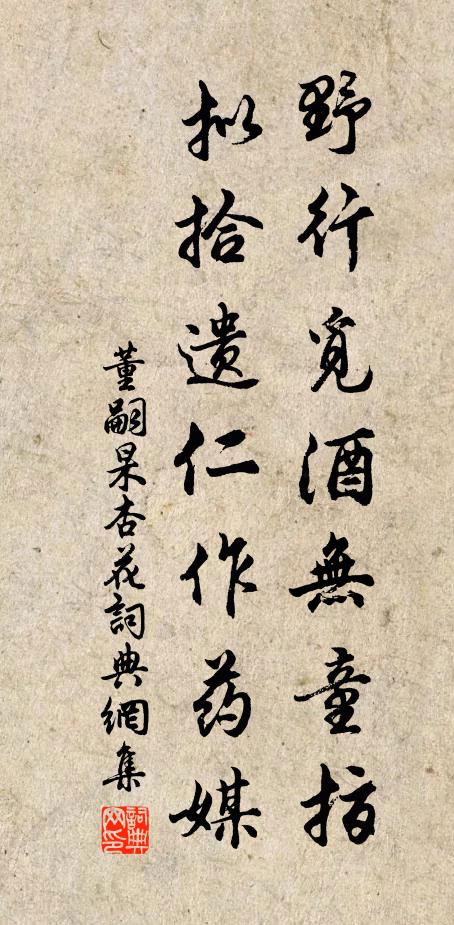 野行觅酒無童指
拟拾遗仁作药媒
董嗣杲杏花詞典網集
詞典网印